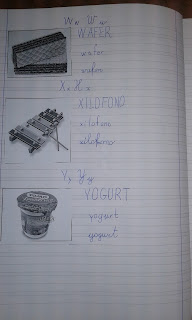 W w W w
WAFER
wafer
wafer
X x
XILOFONO
xilofono
xilofono
Y y Y y
YOGURT
yogurt
yogurt